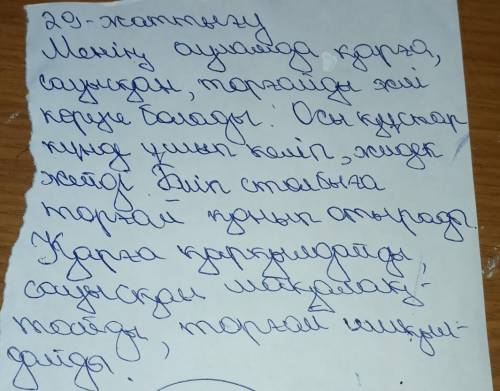 29-жаттығу
Менің ауламда қарға,
сауысқан, торғайды жиі
көруге болады. Осы құстар
күнде ұшып келіп, жидек
жейді. Биік столбыға
торғай қонып отырады.
Қарға қарқылдайды,
сауысқан шақалақ-
тайды, торғай шиқыл-
дайды.